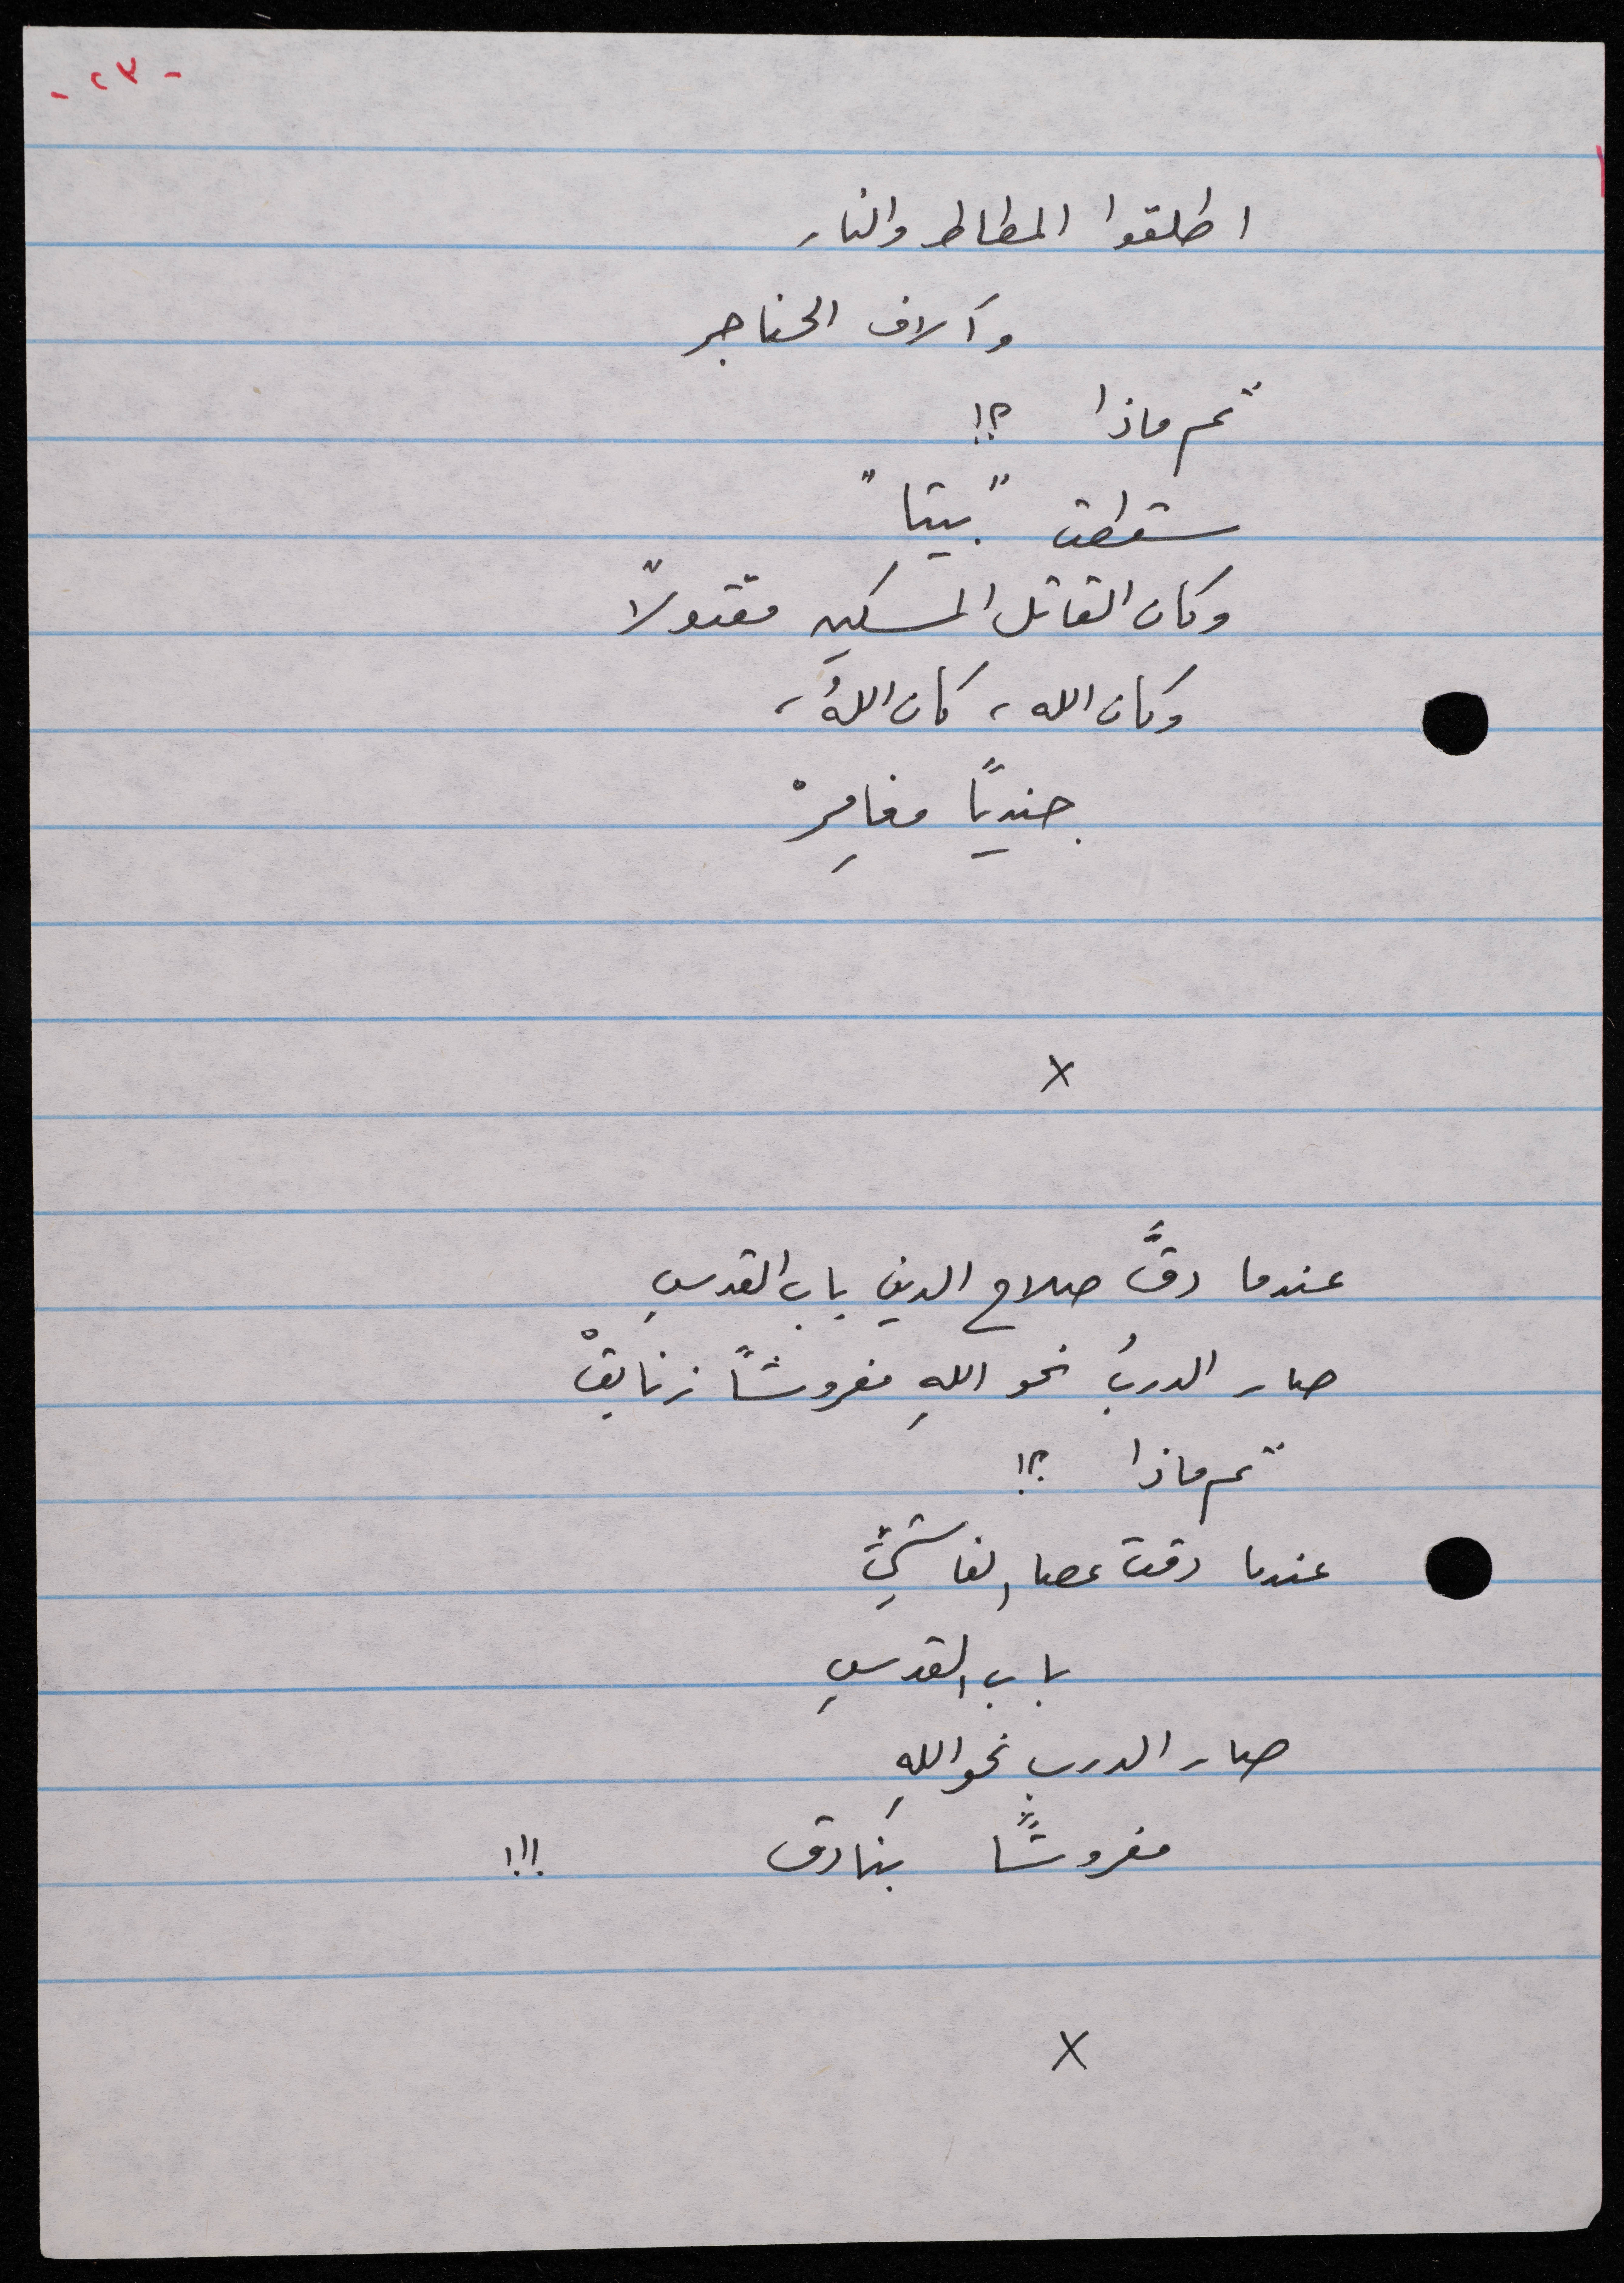 - ٢٣ -
اطلقوا المطاط والنار
وآلاف الخناجر
ثم ماذا ؟!
سقطت "بيتا"
وكان القاتل المسكينِ مقتولاً
وكان الله، كان اللهُ،
جنديًا مغامِرْ
x
عندما دقَّ صلاح الدين باب القدسِ
صار الدربُ نحو اللهِ مفروشاً زنابقْ
ثم ماذا ؟!
عندما دقت عصا الفاشيِّ
باب القدسِ
صار الدرب نحو اللهِ
مفروشًا بنادق !!!
x